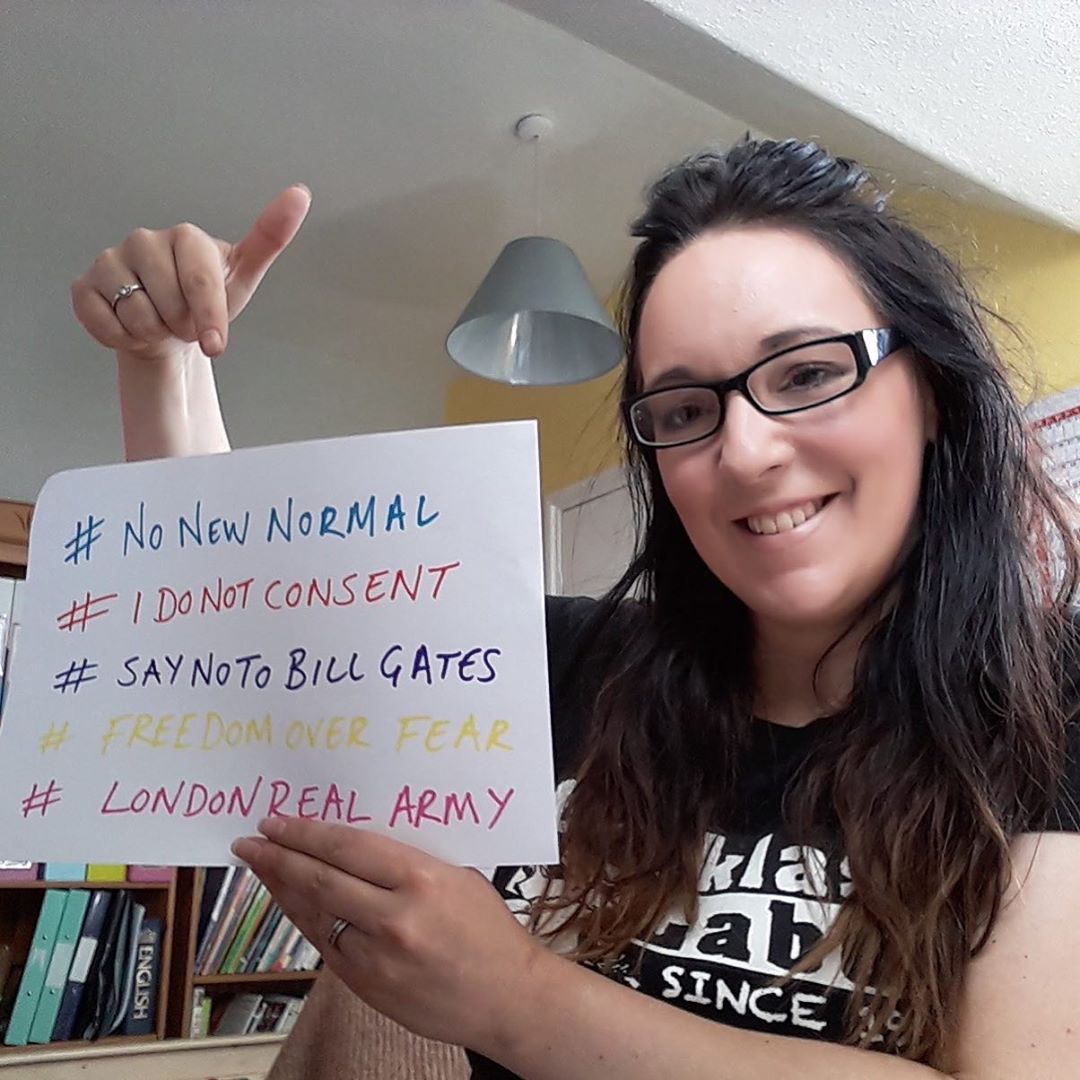 # NO NEW NORMAL
# I DO NOT CONSENT
# SAY NO TO BILL GATES
# FREEDOM OVER FEAR
# LONDON REAL ARMY
ENGLISH
SINCE